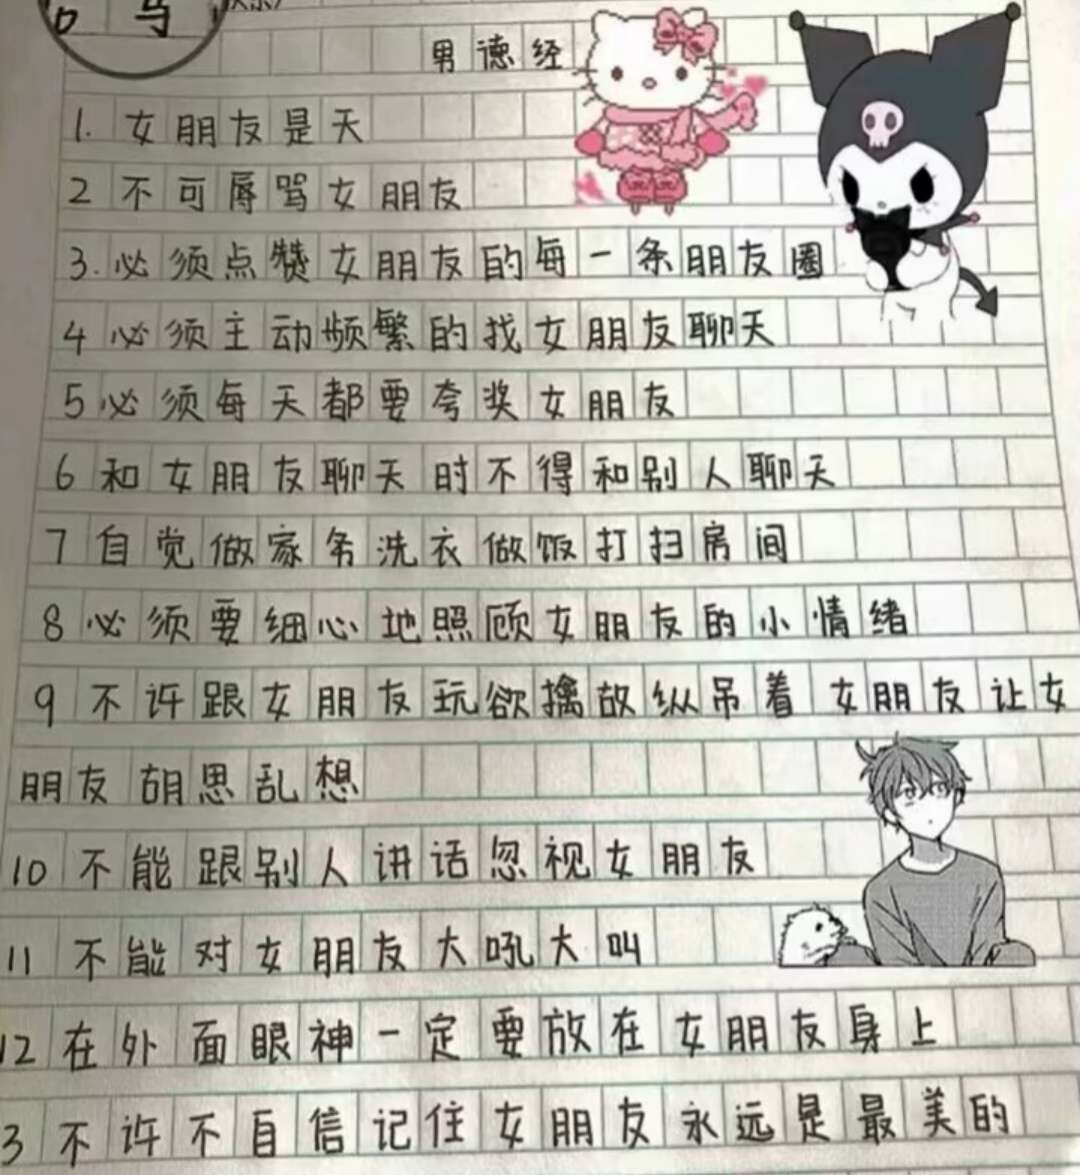 男德经
1. 女朋友是天
2 不可辱骂女朋友
3.必须点赞女朋友的每一条朋友圈
4 必须主动频繁的找女朋友聊天
5必须每天都要夸奖女朋友
6 和女朋友聊天时不得和别人聊天
7 自觉做家务洗衣做饭打扫房间
8必须要细心地照顾女朋友的小情绪
9 不许跟女朋友玩欲擒故纵吊着女朋友让女
朋友胡思乱想
10不能跟别人讲话忽视女朋友
11 不能对女朋友大吼大叫
12在外面眼神一定要放在女朋友身上
3不许不自信记住女朋友永远是最美的